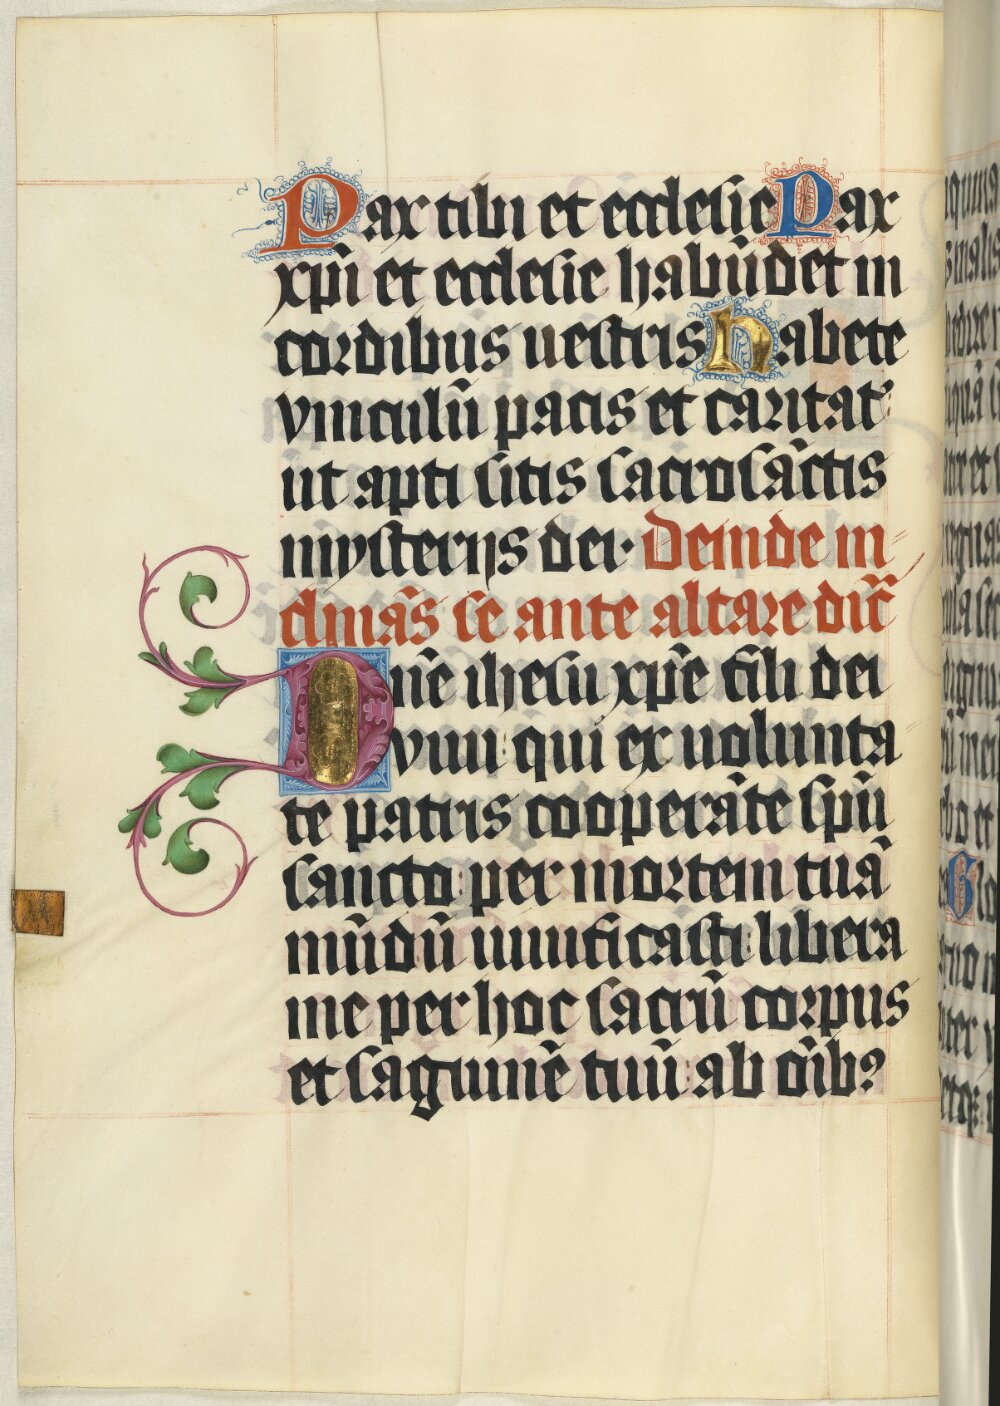 Pax tibi et ecclesie Pax
xp̄i et ecclesie habūdet in
cordibus uestris habete
vinculū pacis et caritat᾽
ut apti sitis sacrosāctis
mysterijs dei· Deinde in
clinās se ante altare dic̄
Dn̄e ihesu xp̄e fili dei
viui qui ex uolunta
te patris cooperāte sp̄u
sancto per mortem tuā
mūdū uiuificasti libera
me per hoc sacrū corpus
et saguinē tuū ab oīb᾽